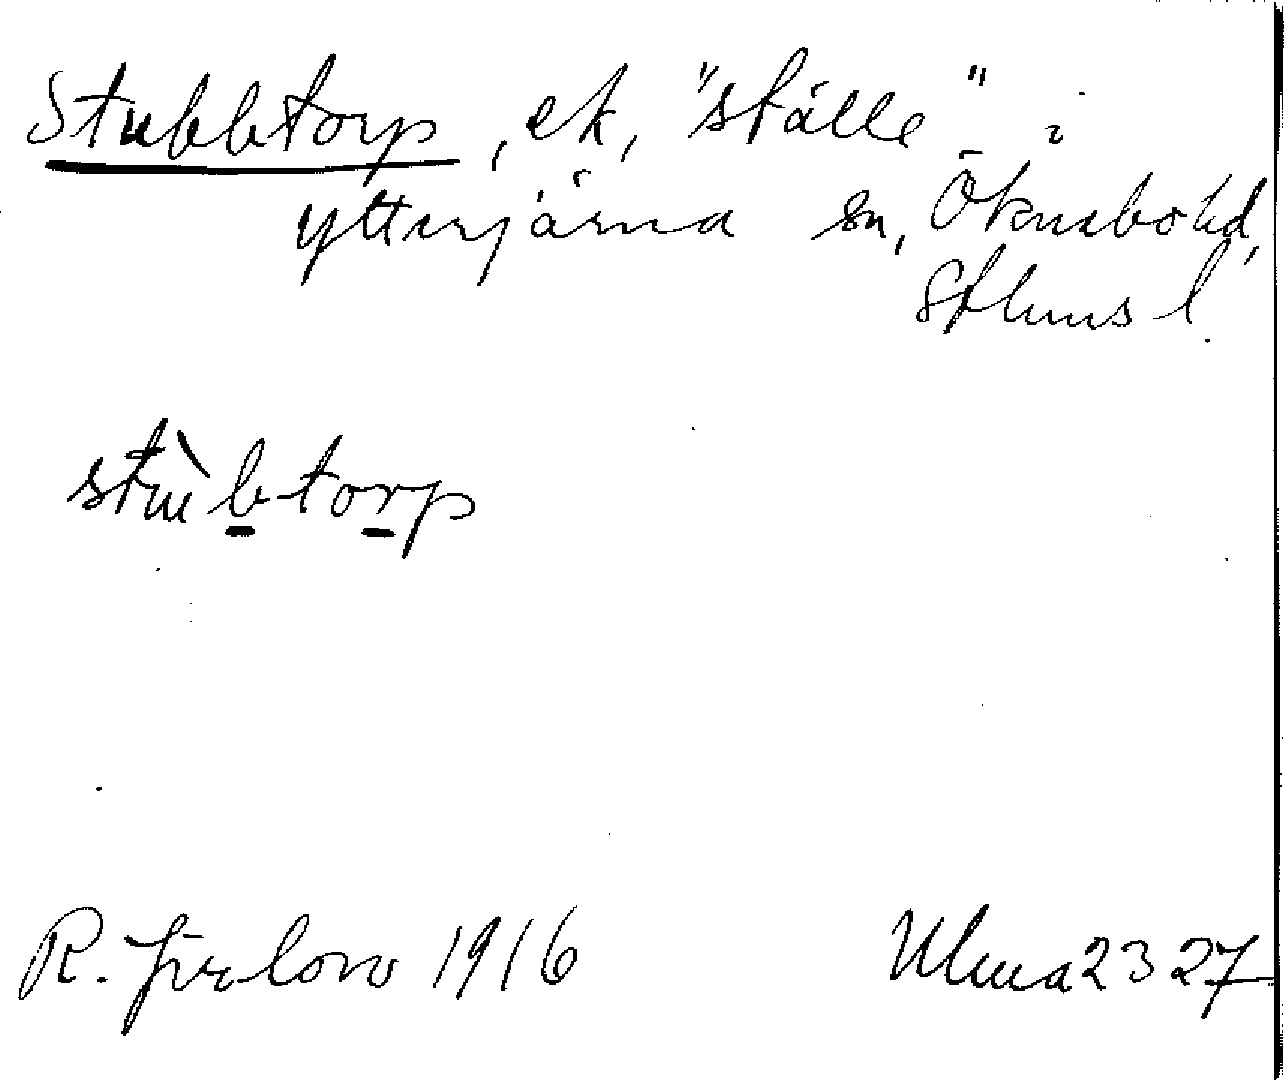 Stubbtorp, ek, "ställe" i
Ytterjärna sn, Öknebo hd,
Sthms l.
stùbtorp
R. Jirlow 1916 Ulma 2327